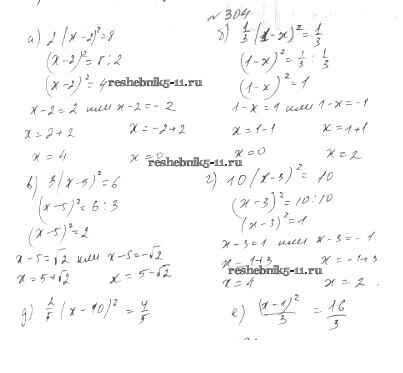 № 304
а) 2(x-2)²=8
(x-2)²=8:2
(x-2)²=4
x-2=2 или x-2=-2
x=2+2 x=-2+2
x=4 x=0
б) 1/3 (1-x)²=1/3
(1-x)²=1/3 : 1/3
(1-x)²=1
1-x=1 или 1-x=-1
x=1-1 x=1+1
x=0 x=2
reshebnik5-11.ru
reshebnik5-11.ru
в) 3(x-5)²=6
(x-5)²=6:3
(x-5)²=2
x-5=√2 или x-5=-√2
x=5+√2 x=5-√2
г) 10(x-3)²=10
(x-3)²=10:10
(x-3)²=1
x-3=1 или x-3=-1
x=1+3 x=-1+3
reshebnik5-11.ru
x=4 x=2.
(x-10)²=4/5
е) (x-1)²/3 =16/3